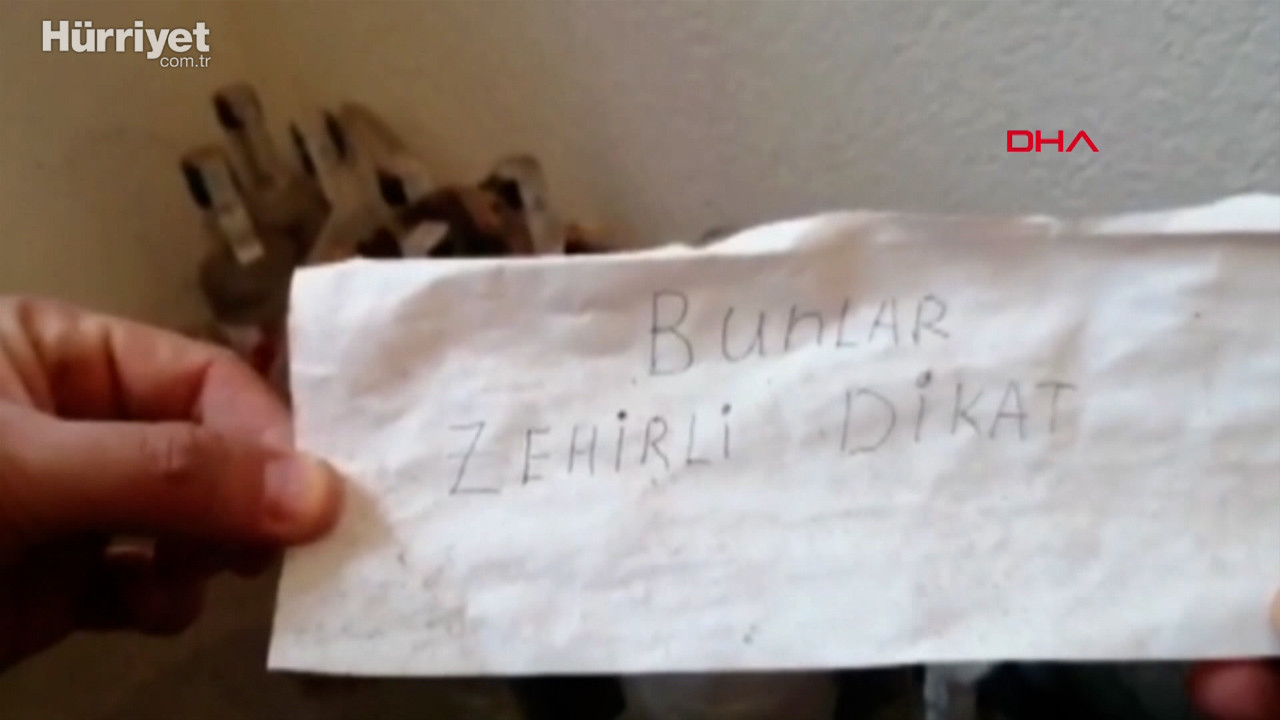 Hürriyet
com.tr
DHA
BUnLAR
ZEHİRLİ DİKAT